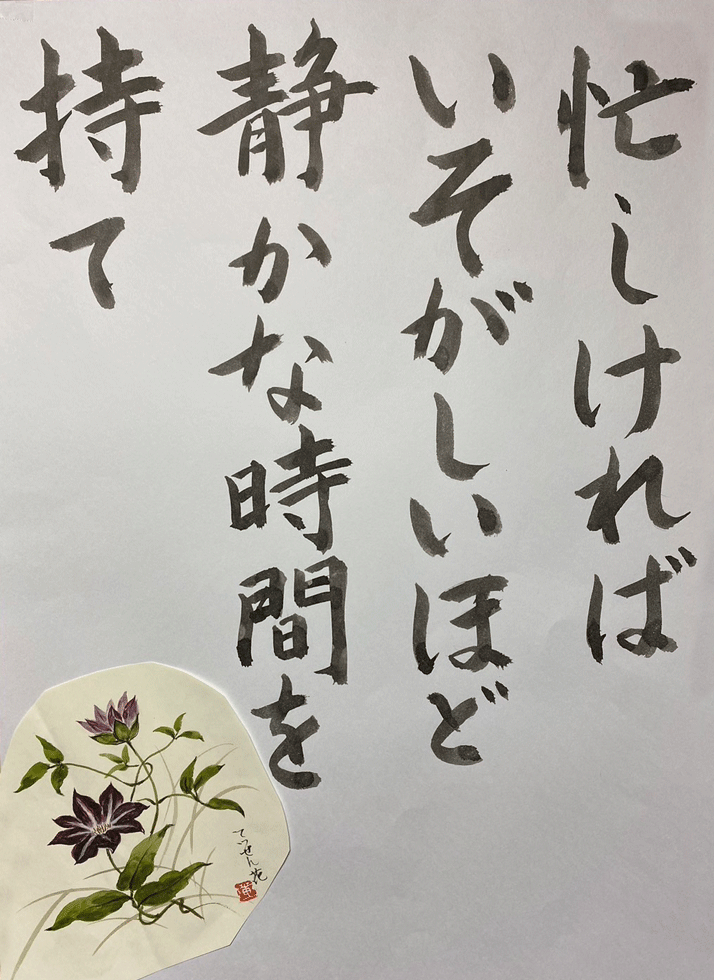 忙しければ
いそがしいほど
静かな時間を
持て
てっせん花